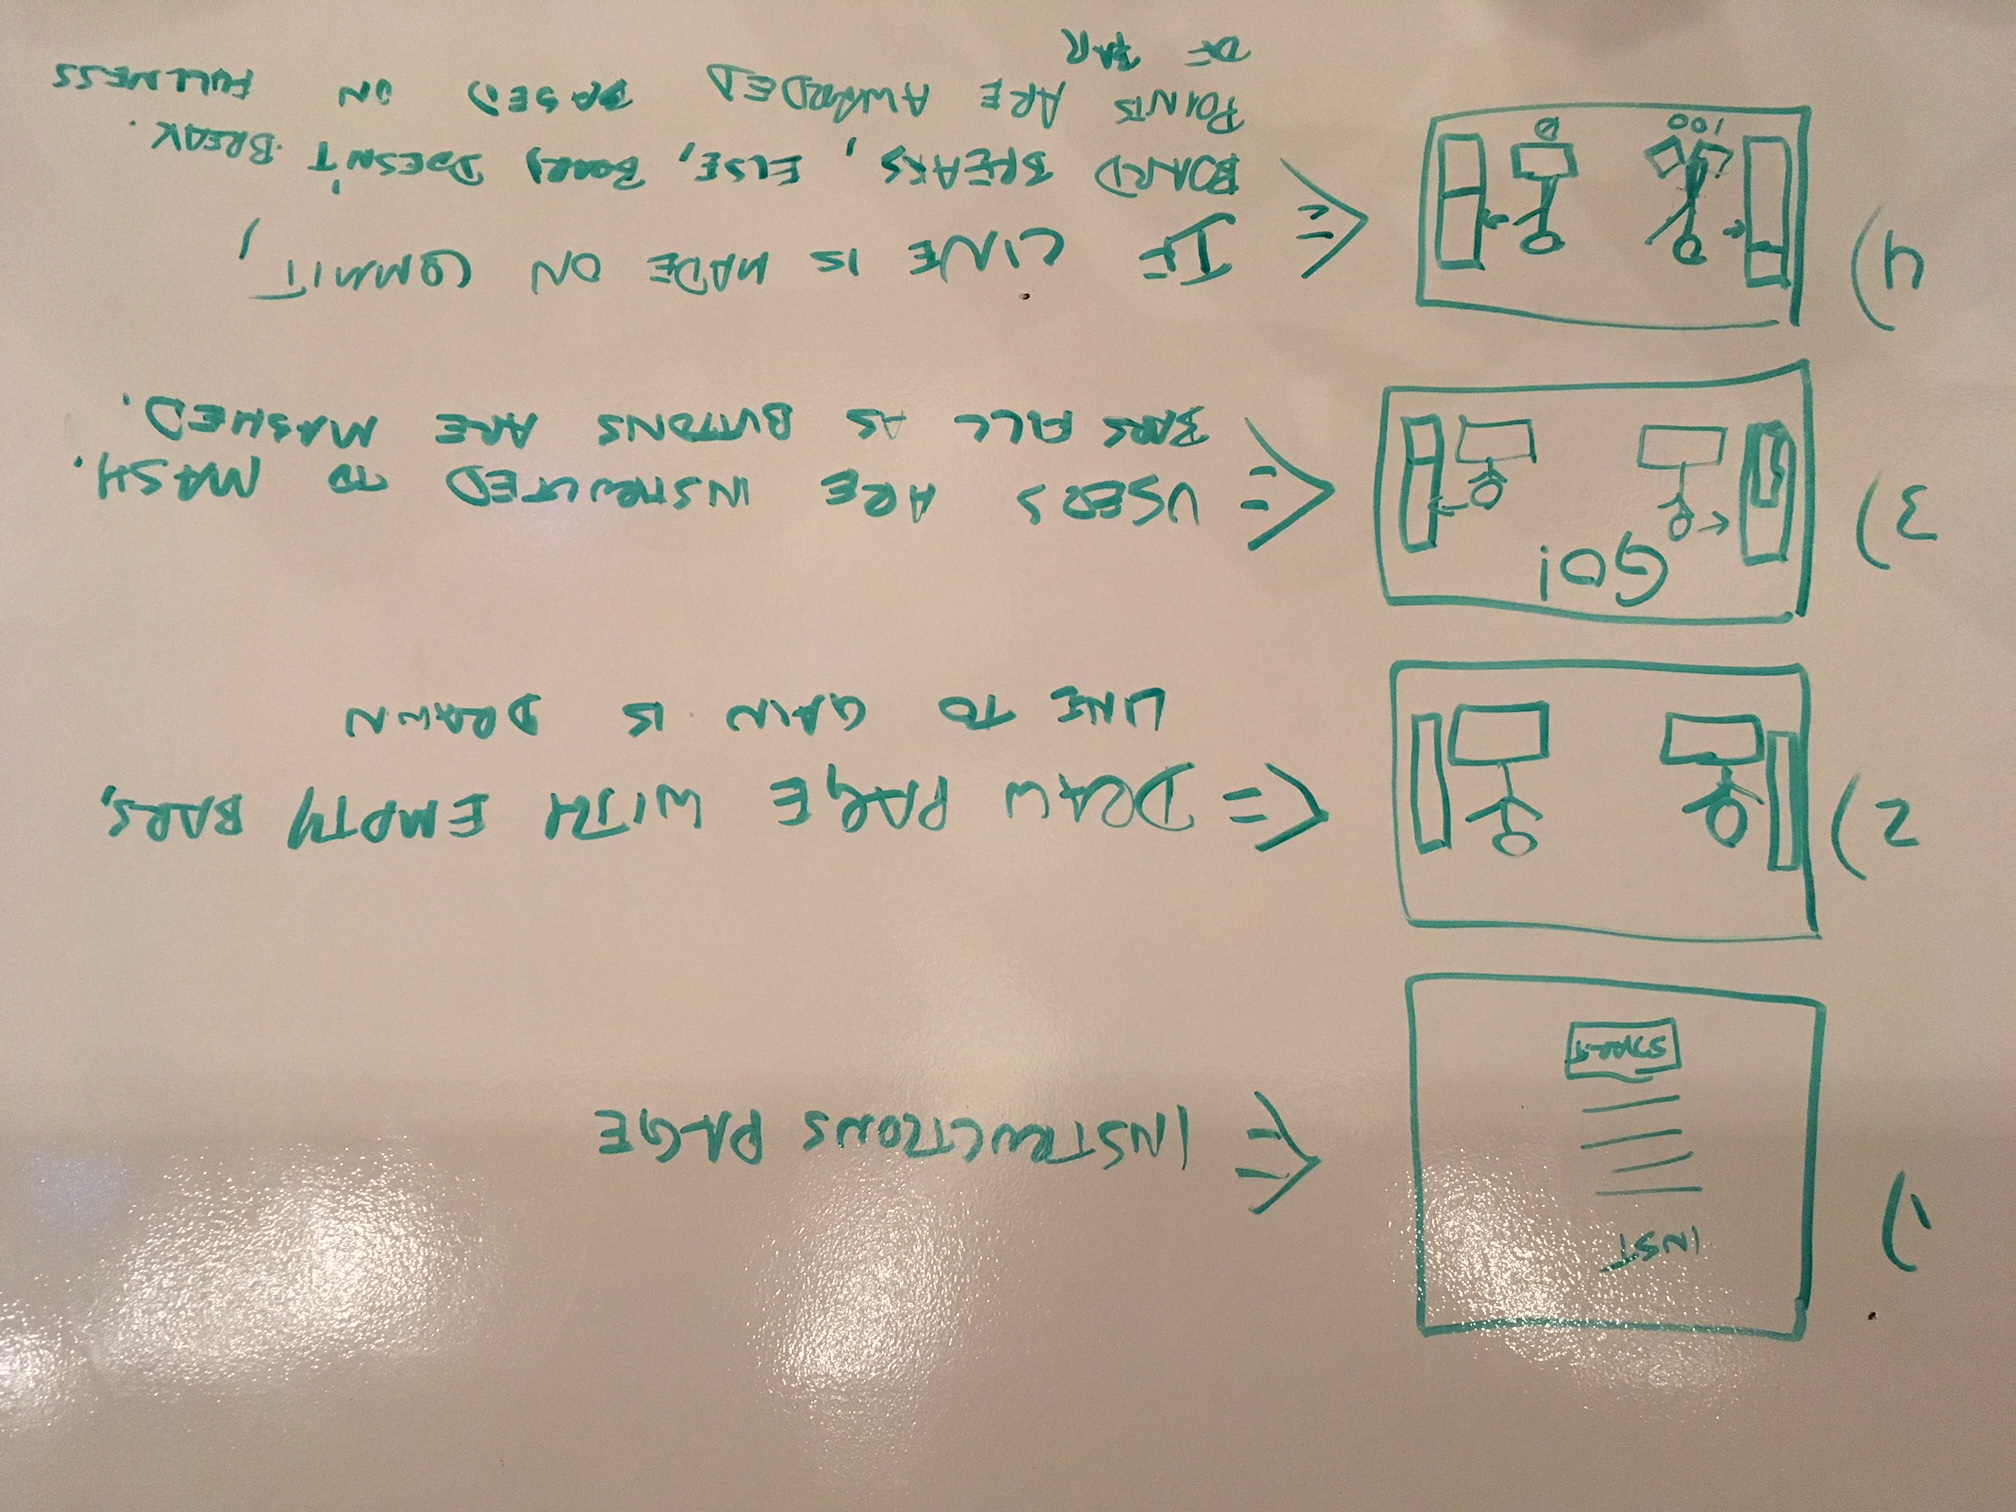 1)
INST
START
INSTRUCTIONS PAGE
2)
DRAW PAGE WITH EMPTY BARS,
LINE TO GAIN IS DRAWN
3)
GO!
USERS ARE INSTRUCTED TO MASH.
BARS FILL AS BUTTONS ARE MASHED.
4)
100
0
IF LINE IS MADE ON COMMIT,
BOARD BREAKS, ELSE, BOARD DOESN'T BREAK.
POINTS ARE AWARDED BASED ON FULLNESS
OF BAR